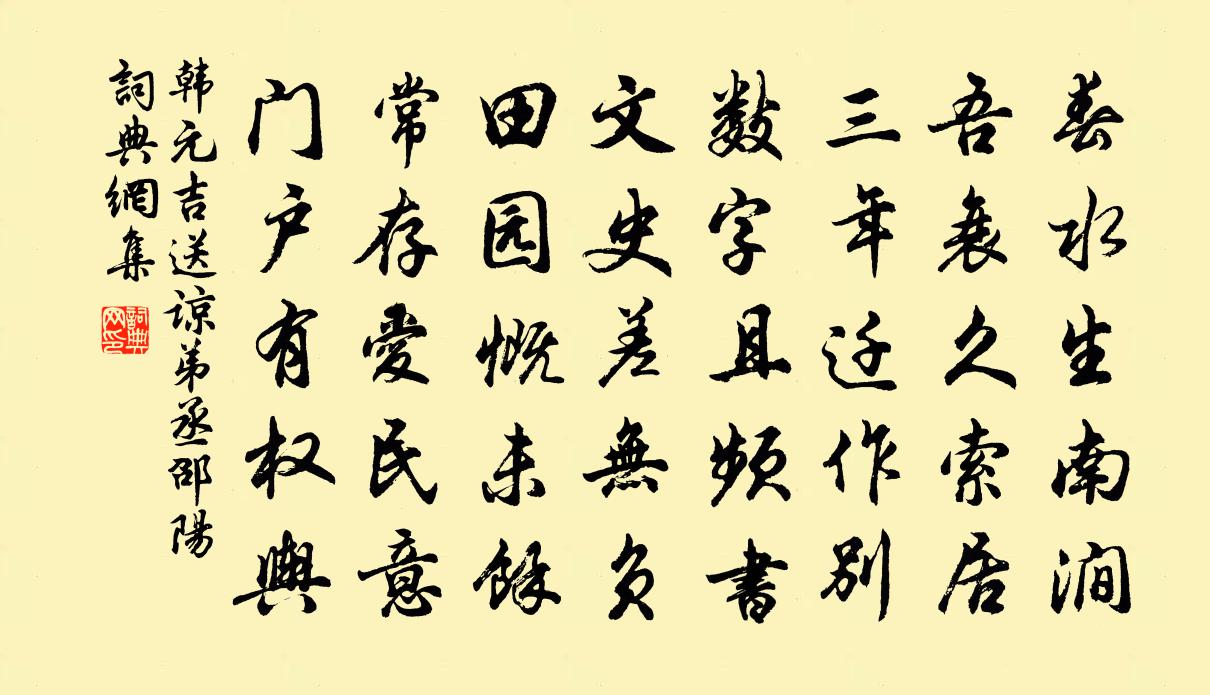 春水生南涧
吾衰久索居
三年迁作别
数字且频书
文史差無负
田园慨未餘
常存愛民意
门户有权輿
韩元吉送谅弟丞邵陽
詞典網集
詞典网印